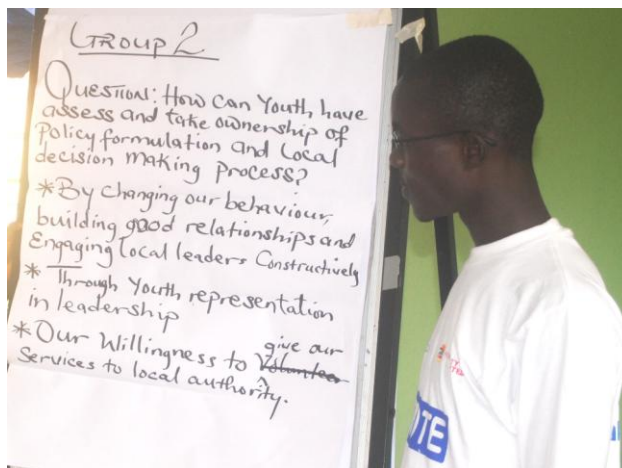 GROUP 2
QUESTION: How can Youth have
assess and take ownership of
Policy formulation and Local
decision making process?
*By changing our behaviour,
building good relationships and
Engaging Local leaders Constructively
* Through Youth representation
in leadership
*Our Willingness to ~~Volunteer~~ give our
Services to local authority.
OTE